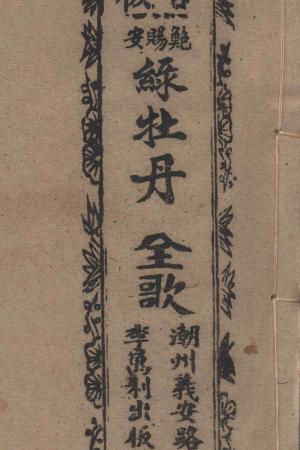 鮑賜安
綠牡丹
全歌
潮州義安路
李萬利出版